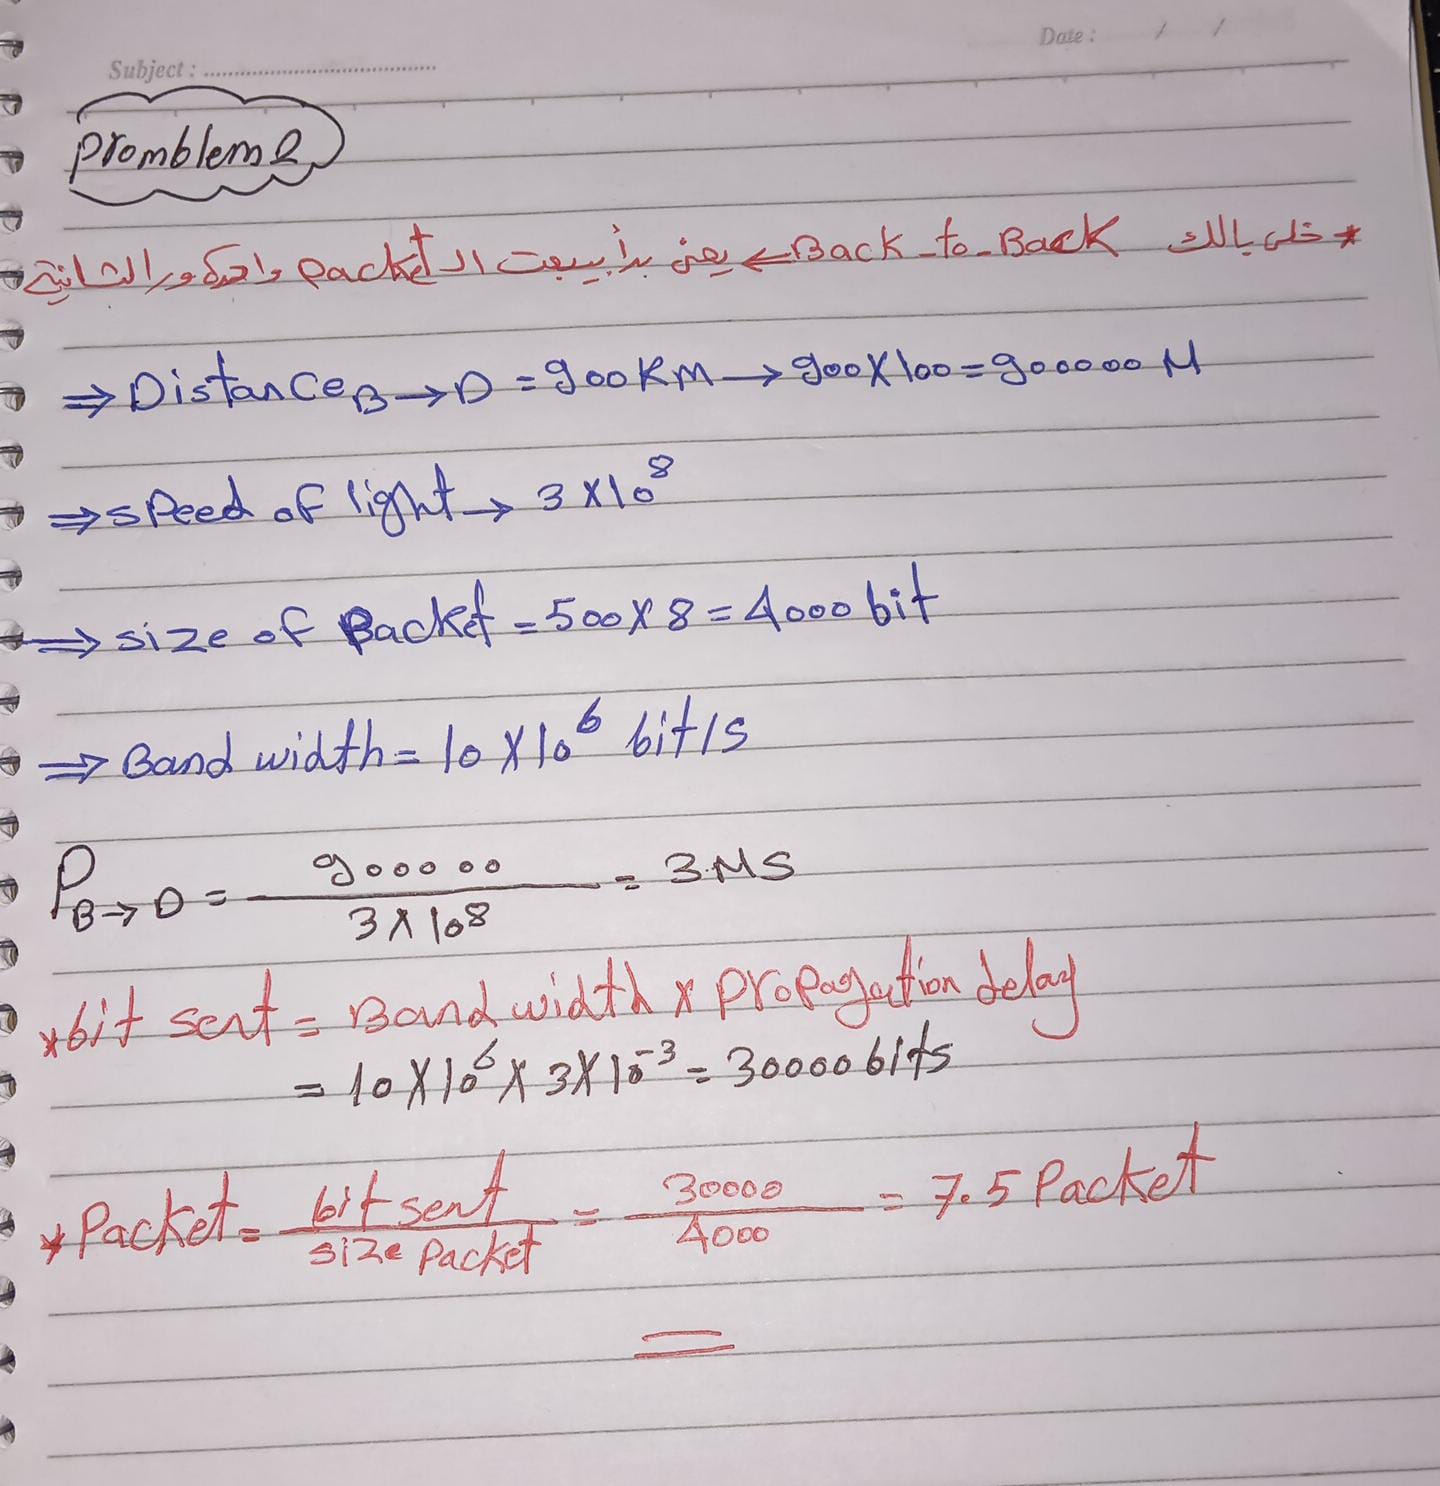 Date : / /
Subject : ..........................................
Promblem 2
* خلى بالك Back-to-Back ← يعنى بدأ يبعت ال Packet واحدة ورا التانية
⇒ Distance B→D = 900KM → 900X100 = 900000 M
⇒ speed of light → 3 X10⁸
⇒ size of Packet = 500X8 = 4000 bit
⇒ Band width = 10 X10⁶ bit/s
P B→D = 900000 / 3X10⁸ = 3MS
* bit sent = Band width x propagation delay
= 10X10⁶ X 3X10⁻³ = 30000 bits
* Packet = bit sent / size packet = 30000 / 4000 = 7.5 Packet